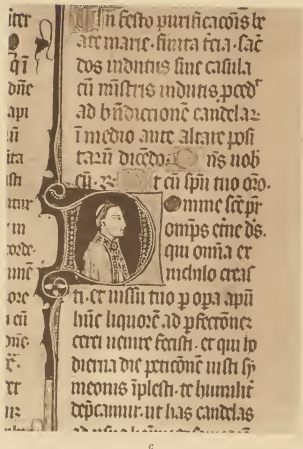 qi
dñe
api
ita
in
corde.
ore
cū
In festo purificacōis be
ate marie. finita t̄cia. sac̄
dos indutus sine casula
cū mīstris indutis. p̄ced̄
ad bn̄dictionē candelaꝝ
ī medio ante altare posi
tarū dicēdo. Dn̄s uob
cū. ℟. Et cū sp̄u tuo. oro.
Domine sc̄e pr̄
omp̄s et̄ne ds̄.
qui om̄ia ex
nichilo creas
ti. et iussu tuo p opa apū
hūc liquorē ad ꝑfectionē
cerei uenire fecisti. et qui ho
dierna die peticōnē iusti sy
meonis īplesti. te humilit̄
dep̄camur. ut has candelas
c